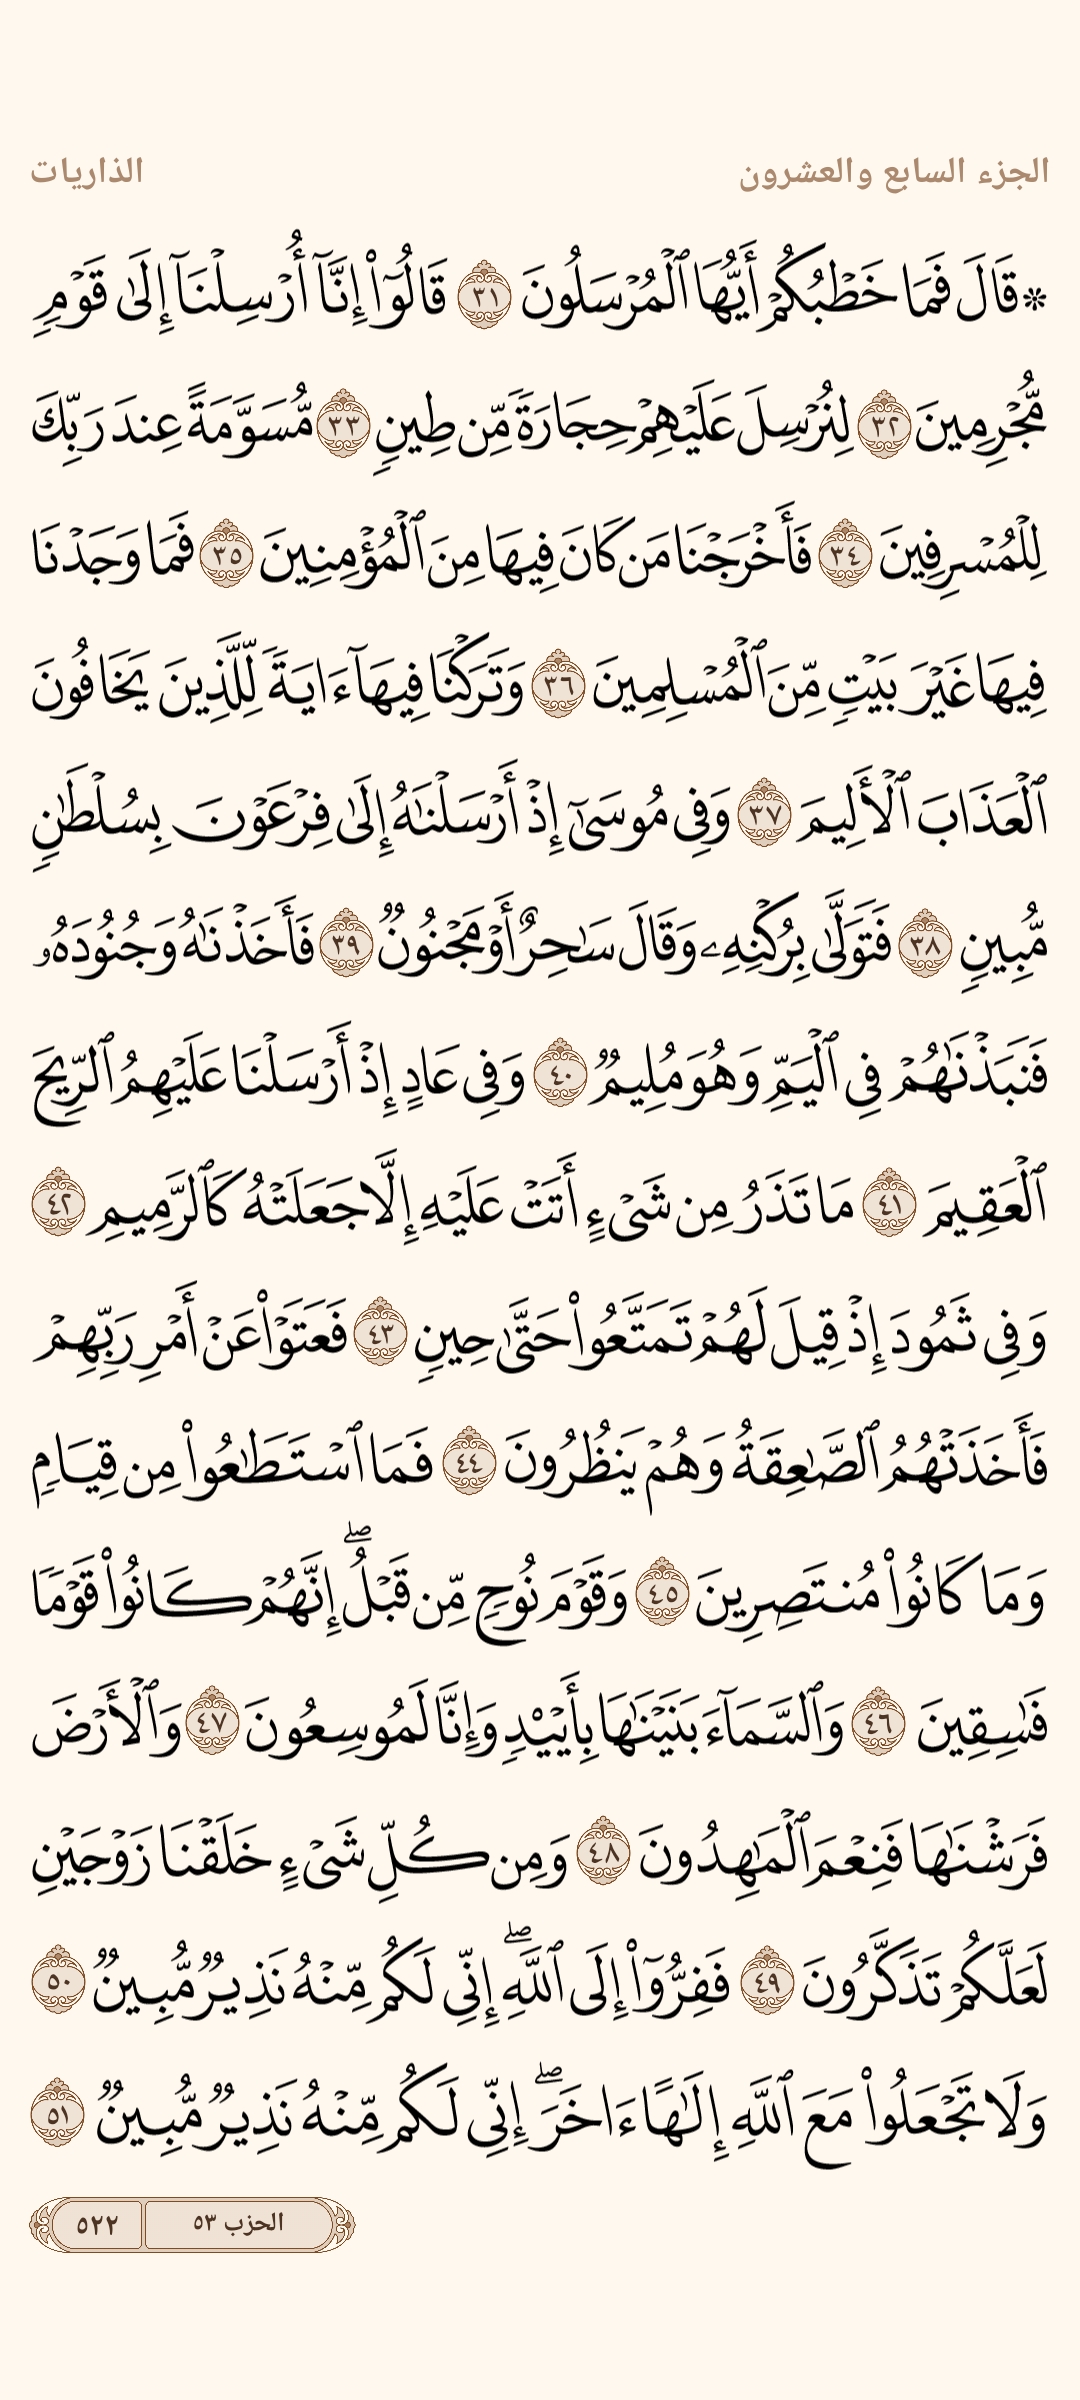 الجزء السابع والعشرون
الذاريات
۞ قَالَ فَمَا خَطْبُكُمْ أَيُّهَا ٱلْمُرْسَلُونَ ٣١ قَالُوٓا۟ إِنَّآ أُرْسِلْنَآ إِلَىٰ قَوْمٍ
مُّجْرِمِينَ ٣٢ لِنُرْسِلَ عَلَيْهِمْ حِجَارَةً مِّن طِينٍ ٣٣ مُّسَوَّمَةً عِندَ رَبِّكَ
لِلْمُسْرِفِينَ ٣٤ فَأَخْرَجْنَا مَن كَانَ فِيهَا مِنَ ٱلْمُؤْمِنِينَ ٣٥ فَمَا وَجَدْنَا
فِيهَا غَيْرَ بَيْتٍ مِّنَ ٱلْمُسْلِمِينَ ٣٦ وَتَرَكْنَا فِيهَآ ءَايَةً لِّلَّذِينَ يَخَافُونَ
ٱلْعَذَابَ ٱلْأَلِيمَ ٣٧ وَفِى مُوسَىٰٓ إِذْ أَرْسَلْنَٰهُ إِلَىٰ فِرْعَوْنَ بِسُلْطَٰنٍ
مُّبِينٍ ٣٨ فَتَوَلَّىٰ بِرُكْنِهِۦ وَقَالَ سَٰحِرٌ أَوْ مَجْنُونٌ ٣٩ فَأَخَذْنَٰهُ وَجُنُودَهُۥ
فَنَبَذْنَٰهُمْ فِى ٱلْيَمِّ وَهُوَ مُلِيمٌ ٤٠ وَفِى عَادٍ إِذْ أَرْسَلْنَا عَلَيْهِمُ ٱلرِّيحَ
ٱلْعَقِيمَ ٤١ مَا تَذَرُ مِن شَىْءٍ أَتَتْ عَلَيْهِ إِلَّا جَعَلَتْهُ كَٱلرَّمِيمِ ٤٢
وَفِى ثَمُودَ إِذْ قِيلَ لَهُمْ تَمَتَّعُوا۟ حَتَّىٰ حِينٍ ٤٣ فَعَتَوْا۟ عَنْ أَمْرِ رَبِّهِمْ
فَأَخَذَتْهُمُ ٱلصَّٰعِقَةُ وَهُمْ يَنظُرُونَ ٤٤ فَمَا ٱسْتَطَٰعُوا۟ مِن قِيَامٍ
وَمَا كَانُوا۟ مُنتَصِرِينَ ٤٥ وَقَوْمَ نُوحٍ مِّن قَبْلُ ۖ إِنَّهُمْ كَانُوا۟ قَوْمًا
فَٰسِقِينَ ٤٦ وَٱلسَّمَآءَ بَنَيْنَٰهَا بِأَيْي۟دٍ وَإِنَّا لَمُوسِعُونَ ٤٧ وَٱلْأَرْضَ
فَرَشْنَٰهَا فَنِعْمَ ٱلْمَٰهِدُونَ ٤٨ وَمِن كُلِّ شَىْءٍ خَلَقْنَا زَوْجَيْنِ
لَعَلَّكُمْ تَذَكَّرُونَ ٤٩ فَفِرُّوٓا۟ إِلَى ٱللَّهِ ۖ إِنِّى لَكُم مِّنْهُ نَذِيرٌ مُّبِينٌ ٥٠
وَلَا تَجْعَلُوا۟ مَعَ ٱللَّهِ إِلَٰهًا ءَاخَرَ ۖ إِنِّى لَكُم مِّنْهُ نَذِيرٌ مُّبِينٌ ٥١
الحزب ٥٣
٥٢٢